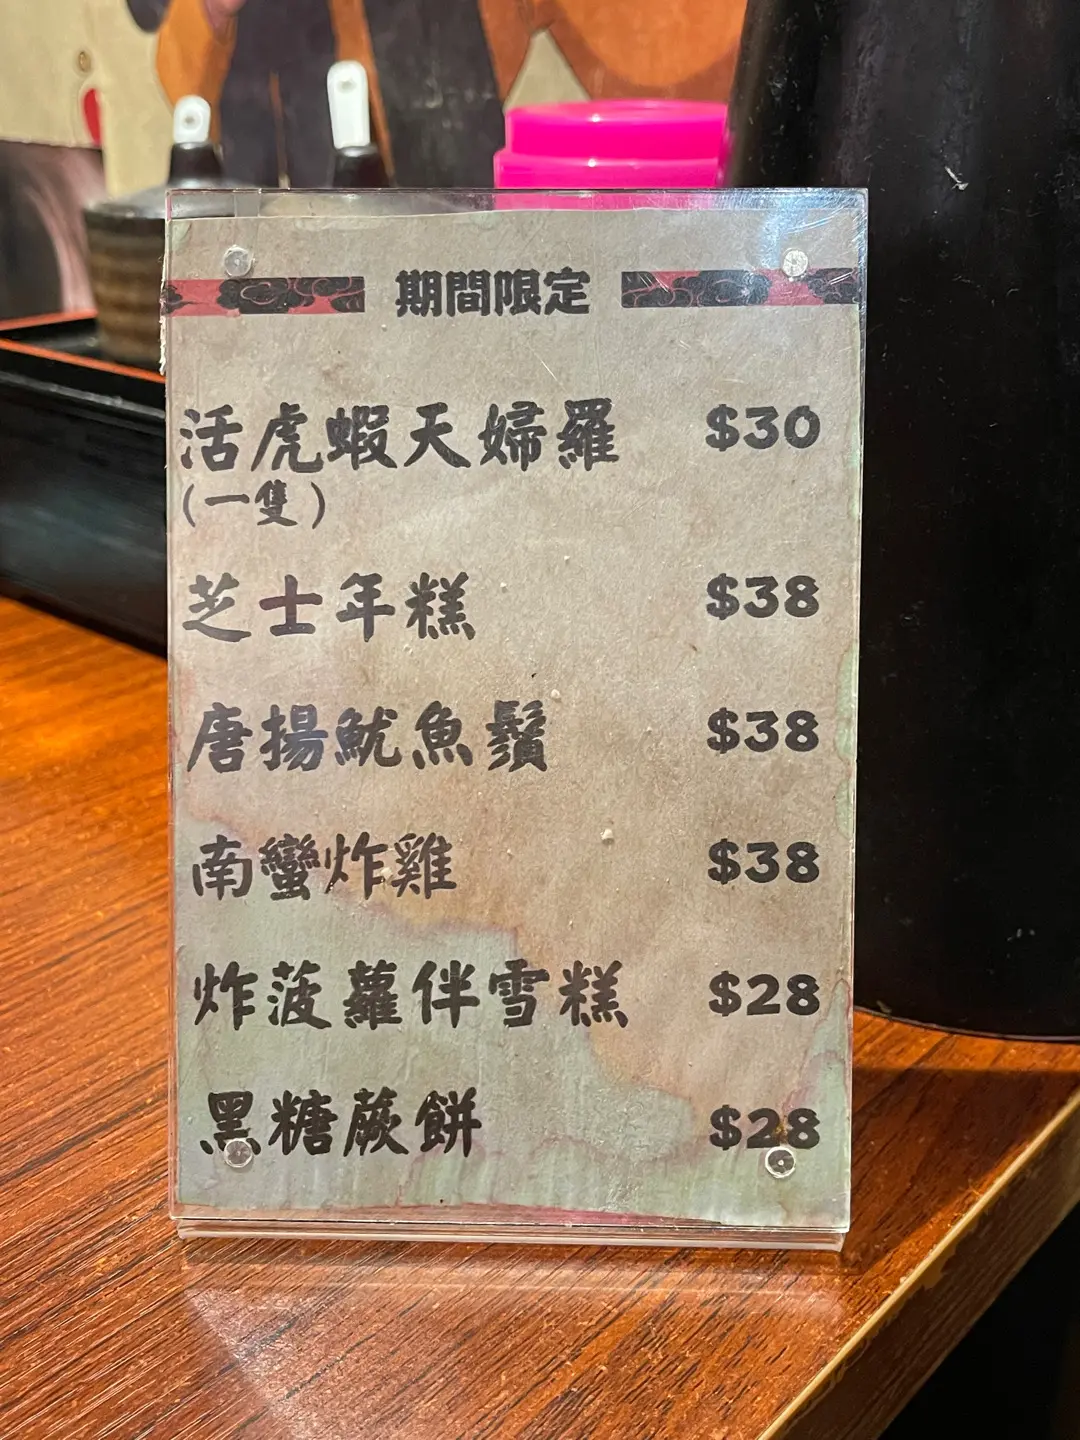 期間限定
活虎蝦天婦羅 $30
(一隻)
芝士年糕 $38
唐揚魷魚鬚 $38
南蠻炸雞 $38
炸菠蘿伴雪糕 $28
黑糖蕨餅 $28